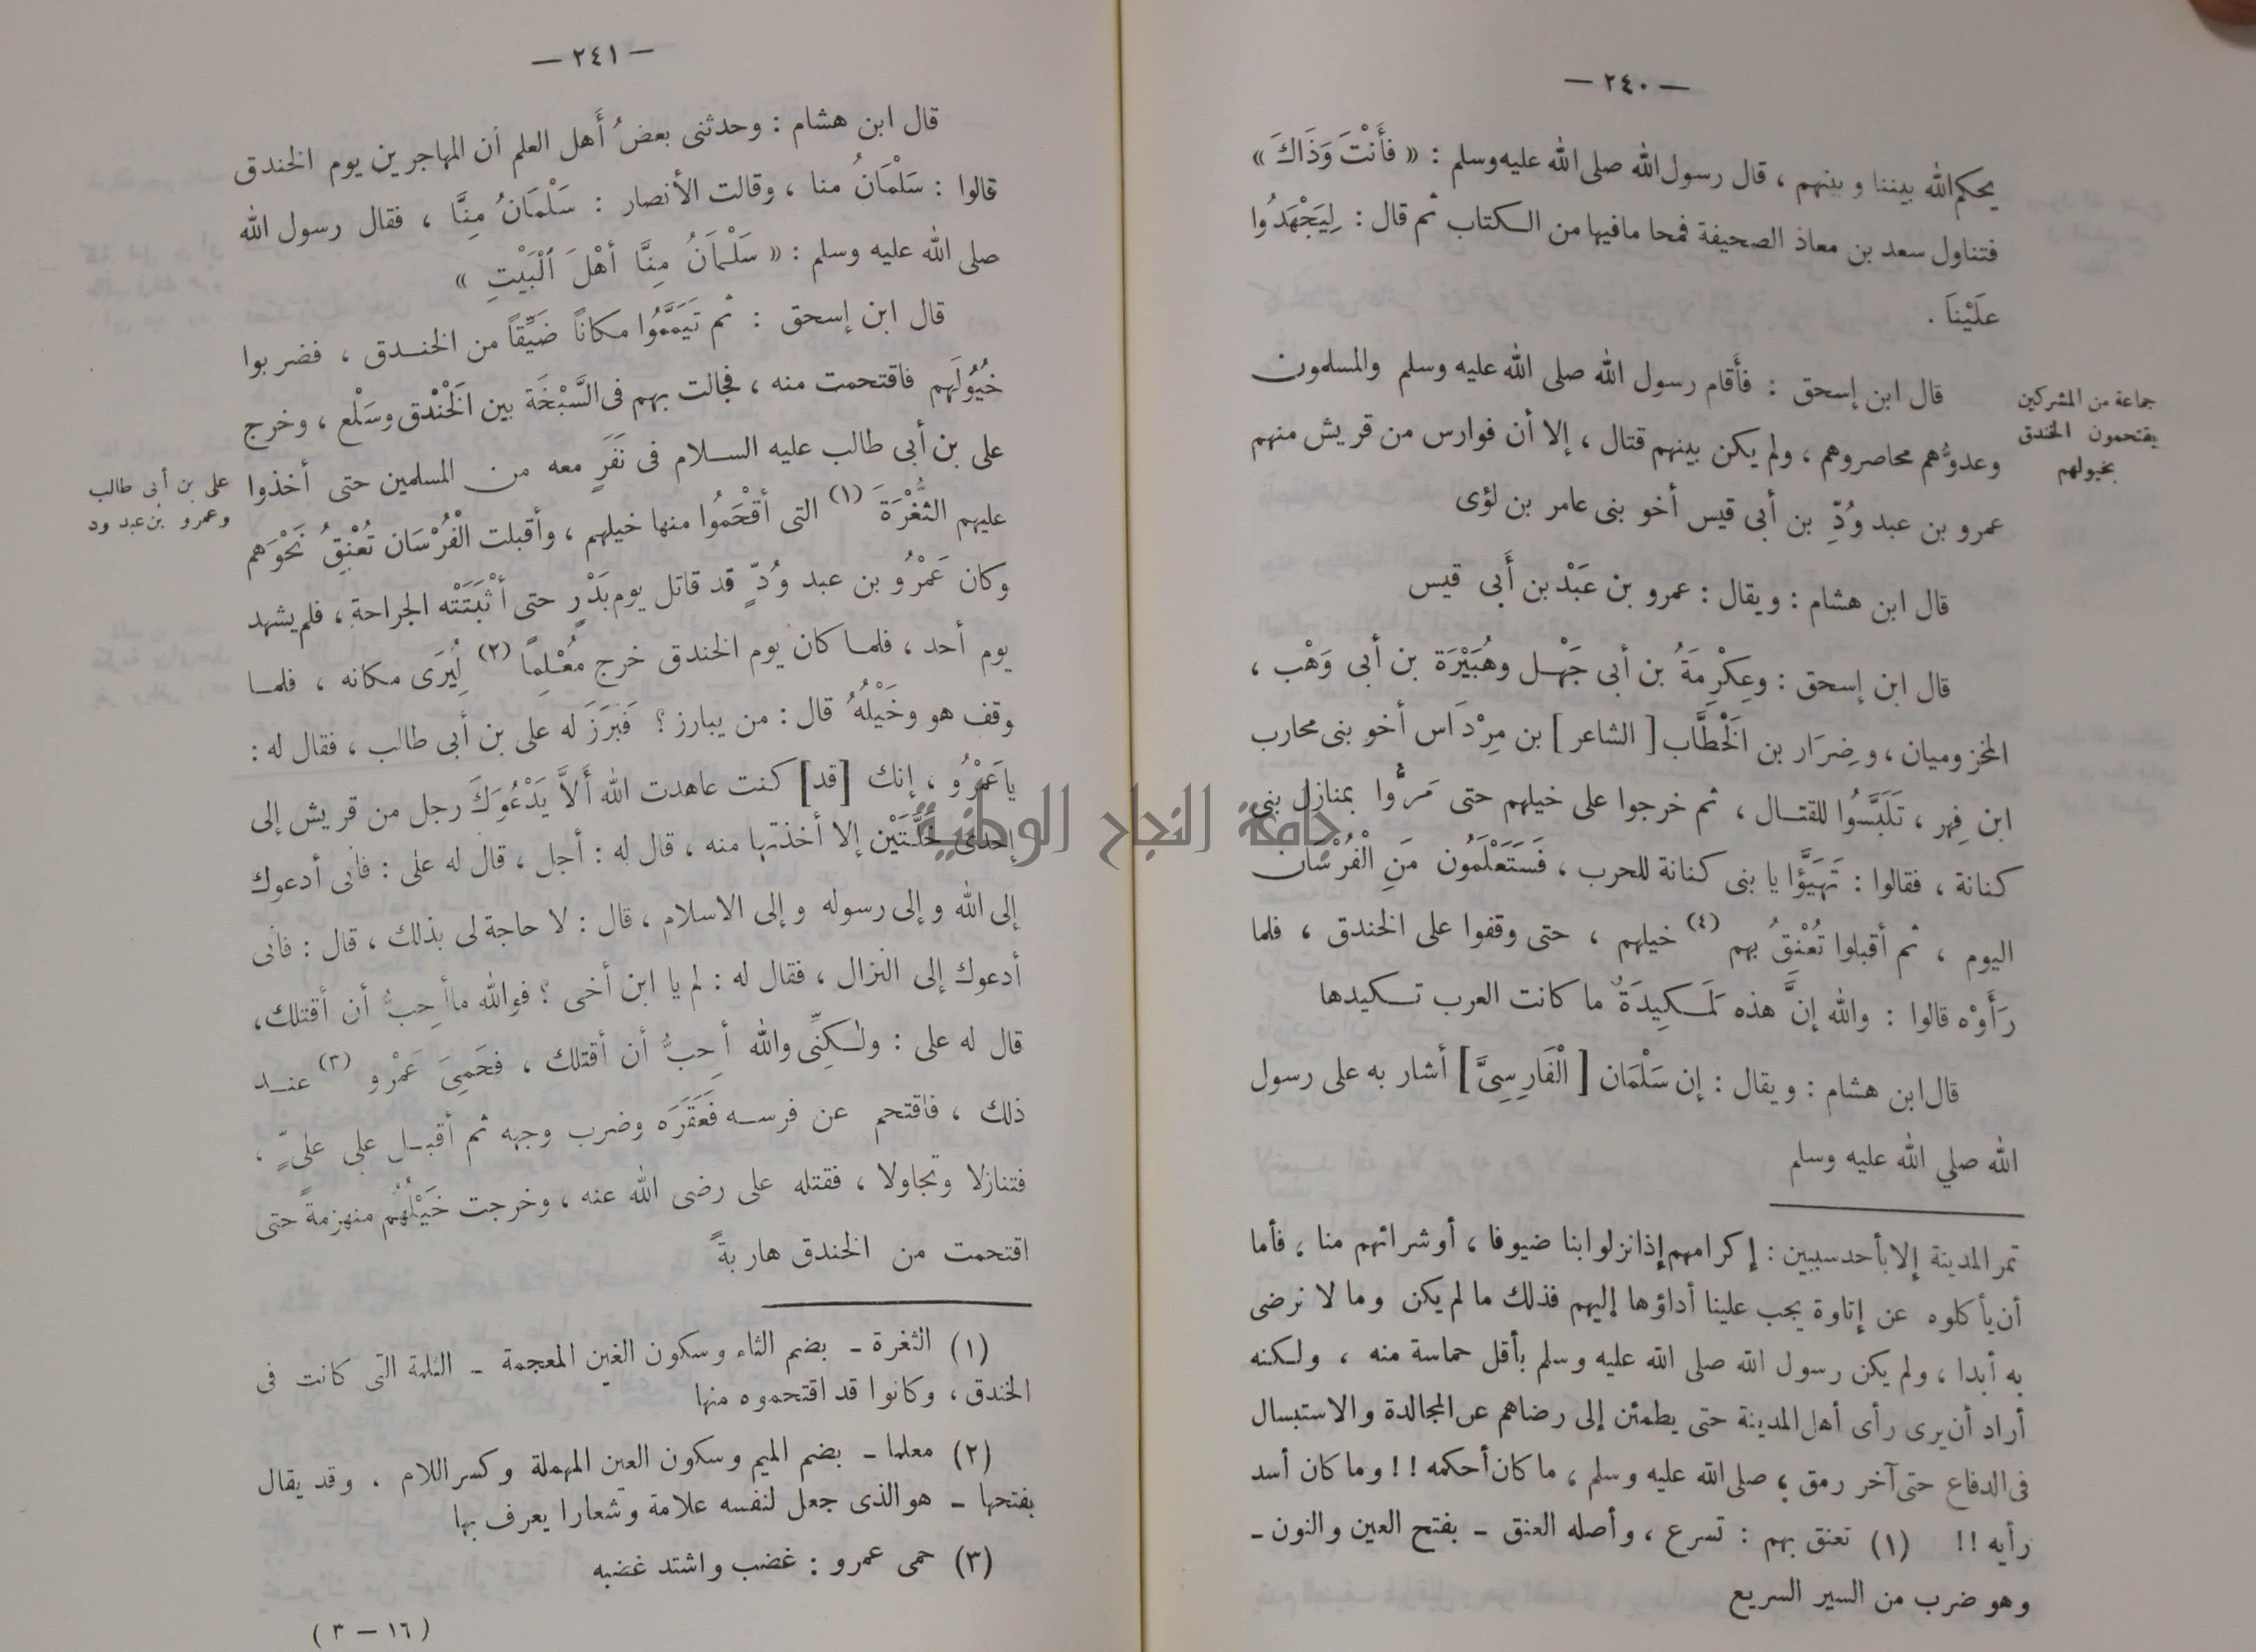 — ٢٤٠ —
يحكم الله بيننا وبينهم ، قال رسول الله صلى الله عليه وسلم : « فَأَنْتَ وَذَاكَ »
فتناول سعد بن معاذ الصحيفة فمحا مافيها من الكتاب ثم قال : لِيَجْهَدُوا
عَلَيْنَا .
جماعة من المشركين
يقتحمون الخندق
بخيولهم
قال ابن إسحق : فأَقام رسول الله صلى الله عليه وسلم والمسلمون
وعدوُّهم محاصروهم ، ولم يكن بينهم قتال ، إلا أن فوارس من قريش منهم
عمرو بن عبد وُدِّ بن أبى قيس أخو بنى عامر بن لؤى
قال ابن هشام : ويقال : عمرو بن عَبْد بن أَبى قيس
قال ابن إسحق : وعِكْرِمَةُ بن أبى جَهْل وهُبَيْرَة بن أبى وَهْب ،
المخزوميان ، وضِرَار بن الَخْطَّاب [ الشاعر ] بن مِرْدَاس أخو بنى محارب
ابن فِهر ، تَلَبَّسُوا للقتال ، ثم خرجوا على خيلهم حتى مَرُّوا بمنازل بنى
كنانة ، فقالوا : تَهَيَّؤُا يا بنى كنانة للحرب ، فَسَتَعْلَمُون مَنِ الْفُرْسَان
اليوم ، ثم أقبلوا تُعْنِقُ بهم (٤) خيلهم ، حتى وقفوا على الخندق ، فلما
رَأَوْه قالوا : والله إنَّ هذه لَمَكِيدَةٌ ما كانت العرب تكيدها
قال ابن هشام : ويقال : إن سَلْمَان [ الْفَارِسِىَّ ] أشار به على رسول
الله صلي الله عليه وسلم
تمر المدينة إلا بأحد سببين : إكرامهم إذا نزلوا بنا ضيوفا ، أو شرائهم منا ، فأما
أن يأكلوه عن إتاوة يجب علينا أداؤها إليهم فذلك ما لم يكن وما لا نرضى
به أبدا ، ولم يكن رسول الله صلى الله عليه وسلم بأقل حماسة منه ، ولكنه
أراد أن يرى رأى أهل المدينة حتى يطمئن إلى رضاهم عن المجالدة والاستبسال
فى الدفاع حتى آخر رمق ، صلى الله عليه وسلم ، ما كان أحكمه !! وما كان أسد
رأيه !! (١) تعنق بهم : تسرع ، وأصله العنق - بفتح العين والنون -
وهو ضرب من السير السريع
— ٢٤١ —
قال ابن هشام : وحدثنى بعضُ أَهل العلم أن المهاجرين يوم الخندق
قالوا : سَلْمَانُ منا ، وقالت الأنصار : سَلْمَانُ مِنَّا ، فقال رسول الله
صلى الله عليه وسلم : « سَلْمَانُ مِنَّا أَهْلَ ٱلْبَيْتِ »
قال ابن إسحق : ثم تَيَمَّمُوا مكاناً ضَيِّقاً من الخندق ، فضربوا
خُيُوْلَهم فاقتحمت منه ، فجالت بهم فى السَّبْخَة بين الَخْنْدق وسَلْع ، وخرج
على بن أبى طالب عليه السلام فى نَفَرٍ معه من المسلمين حتى أخذوا
على بن أبى طالب
وعمرو بن عبد ود
عليهم الثُّغْرَةَ (١) التى أقْحَمُوا منها خيلهم ، وأقبلت الْفُرْسَان تُعْنِقُ نَحْوَهم
وكان عَمْرُو بن عبد وُدّ ٍ قد قاتل يوم بَدْرٍ حتى أثْبَتَتْه الجراحة ، فلم يشهد
يوم أحد ، فلما كان يوم الخندق خرج مُعْلِماً (٢) لِيُرَى مكانه ، فلما
وقف هو وخَيْلُهُ قال : من يبارز ؟ فَبَرَزَ له على بن أبى طالب ، فقال له :
يا عَمْرُو ، إنك [قد] كنت عاهدت الله أَلاَّ يَدْعُوَكَ رجل من قريش إلى
إحدى خَلَّتَيْن إلا أخذتها منه ، قال له : أجل ، قال له على : فانى أدعوك
إلى الله وإلى رسوله وإلى الاسلام ، قال : لا حاجة لى بذلك ، قال : فانى
أدعوك إلى النزال ، فقال له : لم يا ابن أخى ؟ فوالله ما أُحِبُّ أن أقتلك،
قال له على : ولكِنِّى والله أُحِبُّ أن أقتلك ، فحَمِىَ عَمْرو (٣) عند
ذلك ، فاقتحم عن فرسه فَعَقَرَه وضرب وجهه ثم أقبل على علىّ ٍ ،
فتنازلا وتجاولا ، فقتله على رضى الله عنه ، وخرجت خَيْلُهُم منهزمةً حتى
اقتحمت من الخندق هاربةً
(١) الثغرة - بضم الثاء وسكون الغين المعجمة - الثلمة التى كانت فى
الخندق ، وكانوا قد اقتحموه منها
(٢) معلما - بضم الميم وسكون العين المهملة وكسر اللام . وقد يقال
بفتحها - هو الذى جعل لنفسه علامة وشعارا يعرف بها
(٣) حمى عمرو : غضب واشتد غضبه
( ١٦ — ٣ )
جامعة النجاح الوطنية